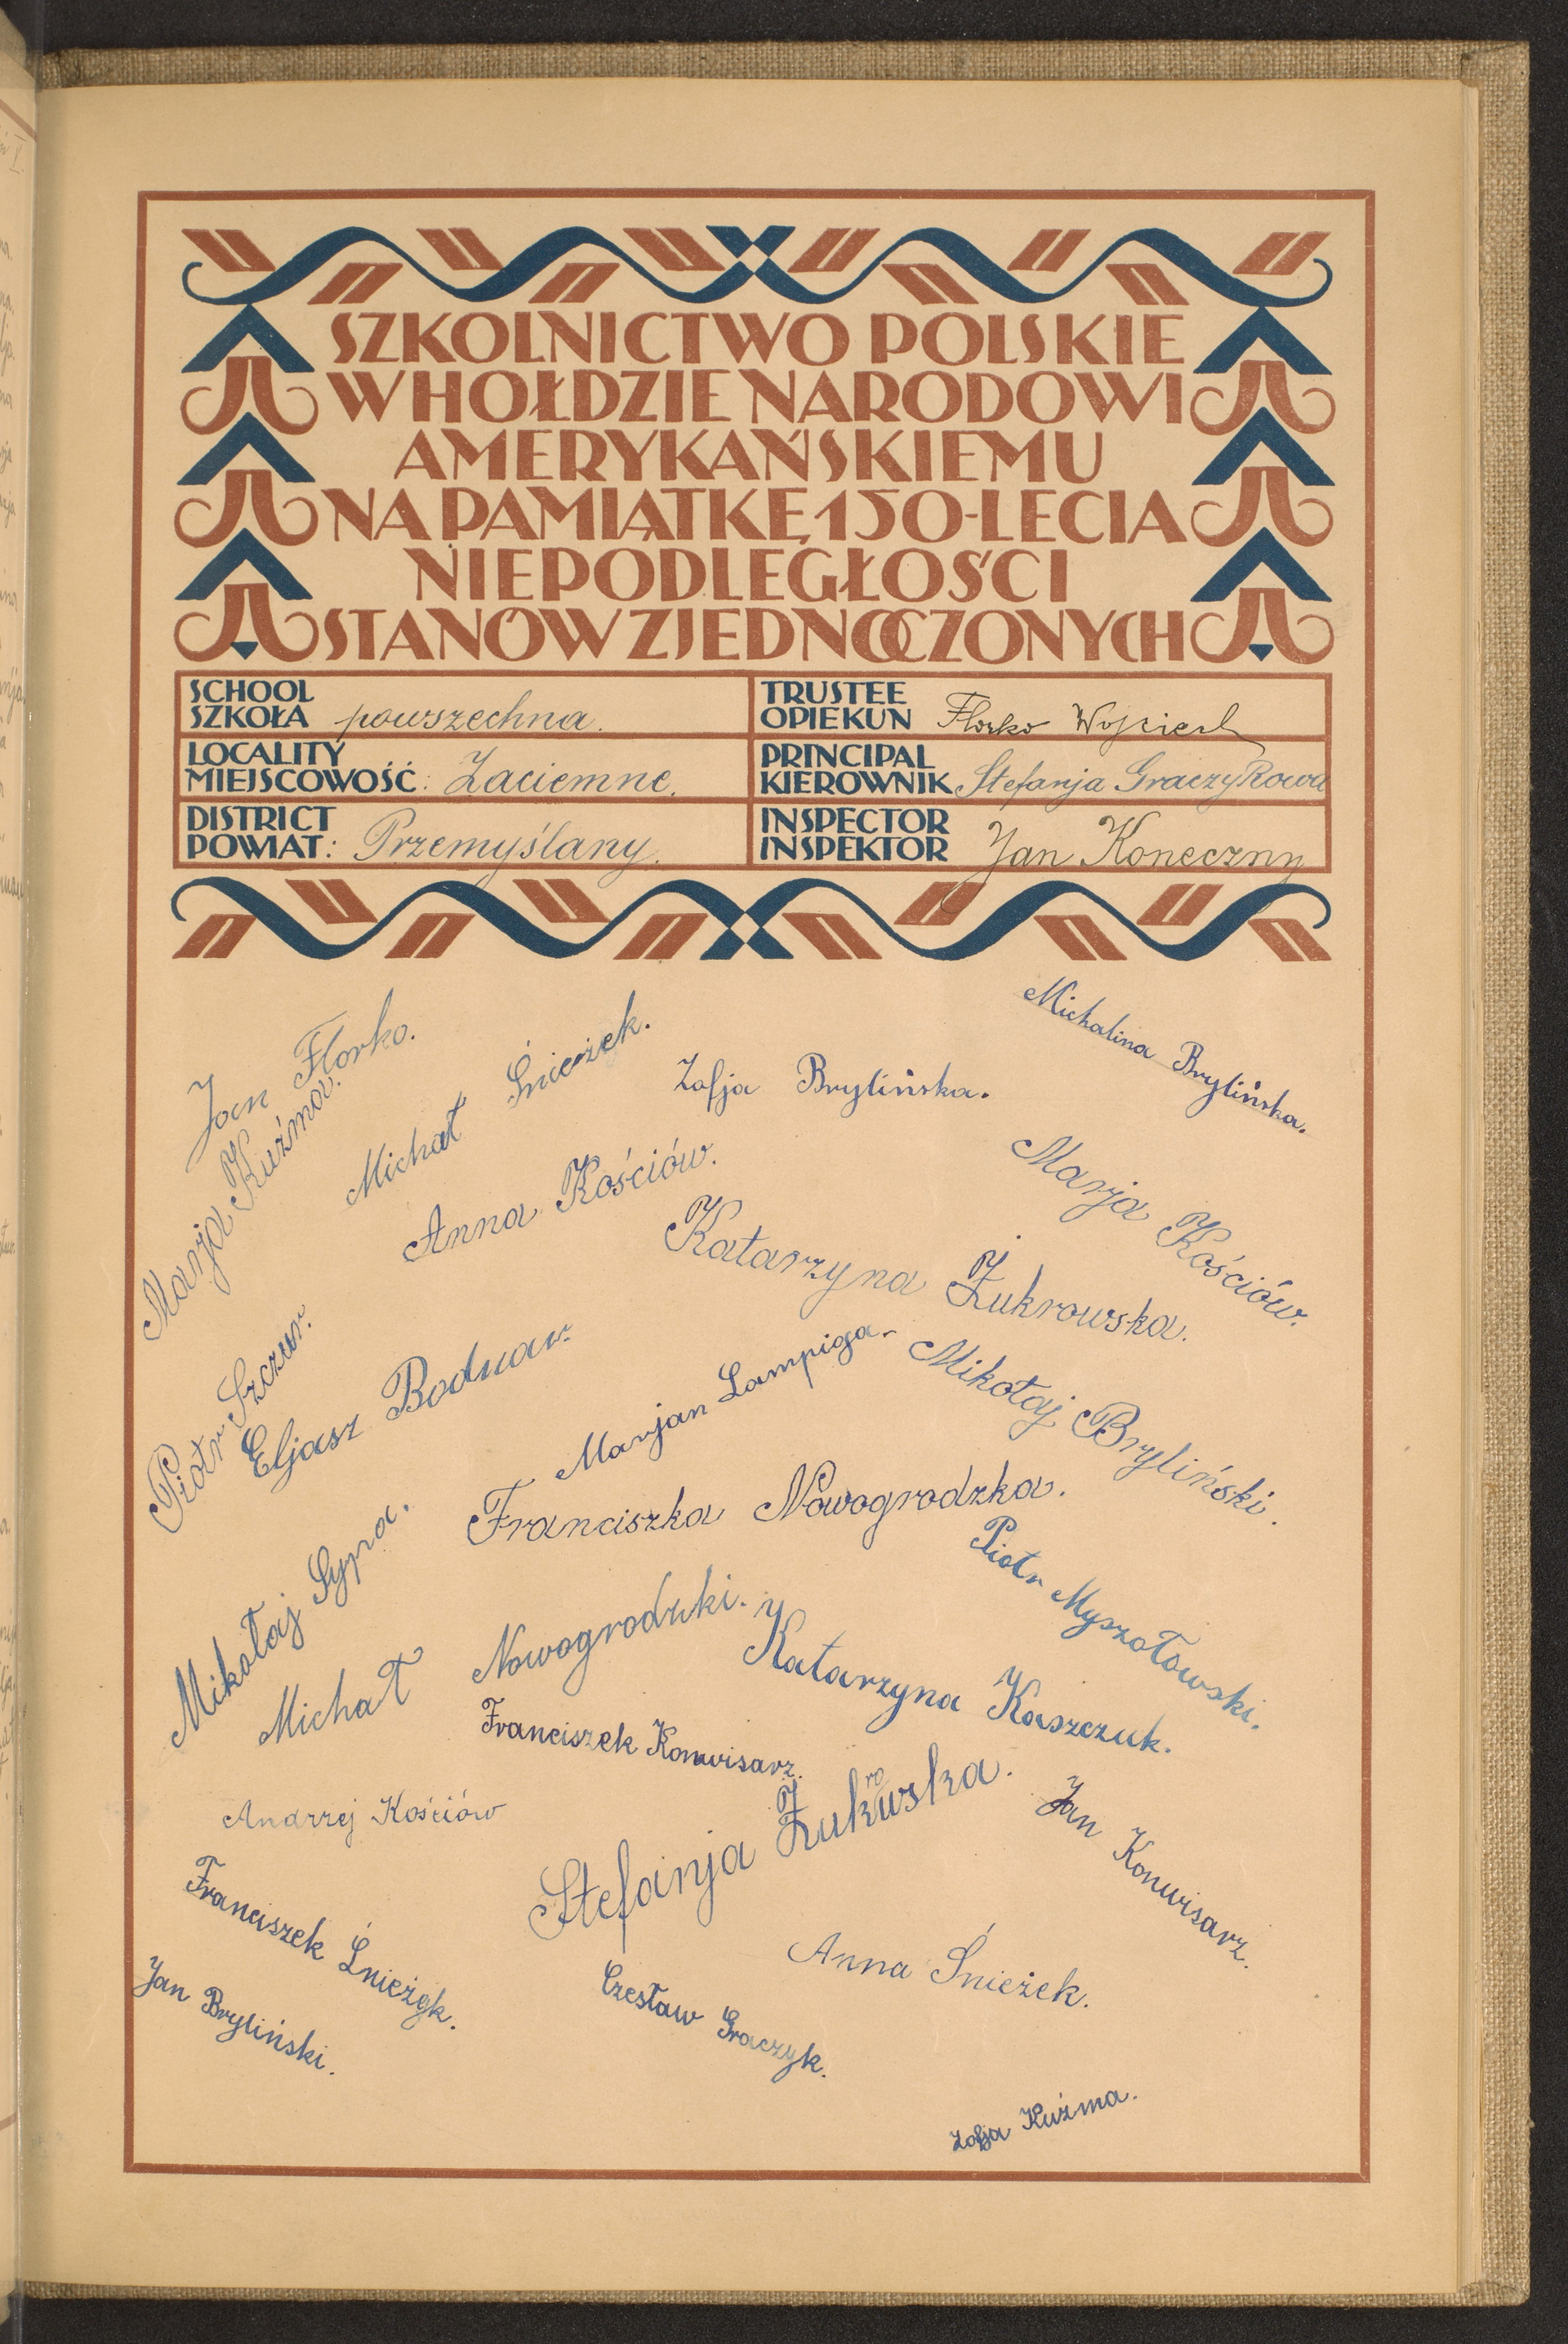 SZKOLNICTWO POLSKIE
W HOŁDZIE NARODOWI
AMERYKAŃSKIEMU
NA PAMIĄTKĘ 150-LECIA
NIEPODLEGŁOŚCI
STANÓW ZJEDNOCZONYCH
SCHOOL
SZKOŁA powszechna.
LOCALITY
MIEJSCOWOŚĆ: Zaciemne.
DISTRICT
POWIAT: Przemyślany.
TRUSTEE
OPIEKUN Florko Wojciech
PRINCIPAL
KIEROWNIK Stefanja Graczykowa
INSPECTOR
INSPEKTOR Jan Koneczny
Jan Florko.
Marja Kuźma.
Michał Śnieżek.
Zofja Brylińska.
Michalina Brylińska.
Anna Kościów.
Marja Kościów.
Katarzyna Żukrowska.
Piotr Szczur.
Eljasz Bodnar.
Marjan Lampiga.
Mikołaj Bryliński.
Franciszka Nowogrodzka.
Piotr Myszołowski.
Mikołaj Sypa.
Michał Nowogrodzki.
Katarzyna Kaszczuk.
Franciszek Konwisarz.
Andrzej Kościów
Stefanja Żukrowska.
Jan Konwisarz.
Franciszek Śnieżek.
Anna Śnieżek.
Jan Bryliński.
Czesław Graczyk.
Zofja Kuźma.